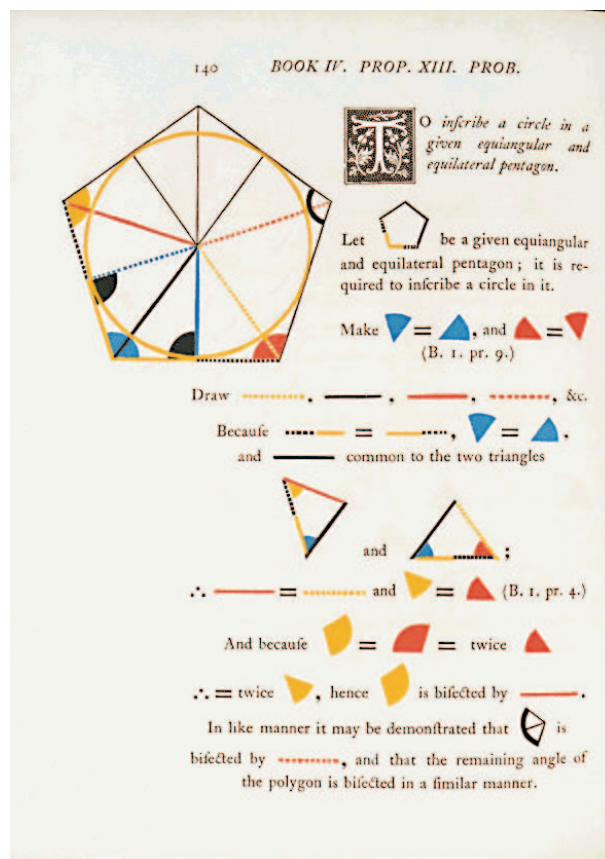 140 BOOK IV. PROP. XIII. PROB.
TO inſcribe a circle in a
given equiangular and
equilateral pentagon.
Let be a given equiangular
and equilateral pentagon; it is re-
quired to inſcribe a circle in it.
Make = , and =
(B. 1. pr. 9.)
Draw , , , , &c.
Becauſe = , = ,
and common to the two triangles
and ;
∴ = and = (B. 1. pr. 4.)
And becauſe = = twice
∴ = twice , hence is biſected by .
In like manner it may be demonſtrated that is
biſected by , and that the remaining angle of
the polygon is biſected in a ſimilar manner.